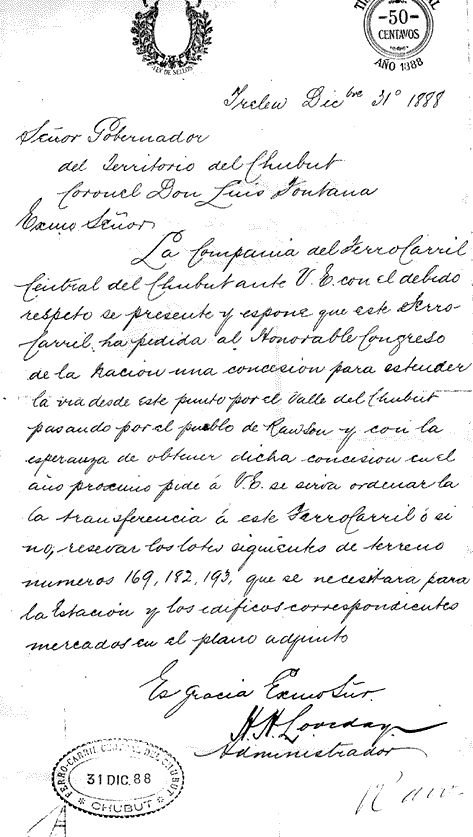 LEY DE SELLOS
50
CENTAVOS
AÑO 1888
Trelew Dicbre 31° 1888
Señor Gobernador
del Territorio del Chubut
Coronel Don Luis Fontana
Exmo Señor
La Compania del FerroCarril
Central del Chubut ante V.E. con el debido
respeto se presente y espone que este Ferro-
Carril ha pedida al Honorable Congreso
de la Nacion una concesion para estender
la via desde este punto por el Valle del Chubut
pasando por el pueblo de Rawson y con la
esperanza de obtener dicha concesion en el
año procsimo pide á V.E. se serva ordenar la
la transferencia á este FerroCarril ó si
no, reservar los lotes siguientes de terreno
numeros 169, 182, 193, que se necesitara para
la Estación y los edificos correspondientes
mercados en el plano adjunto
Es gracia Exmo Sñr.
H.H. Loveday
Administrador
FERRO-CARRIL CENTRAL DEL CHUBUT
31 DIC. 88
CHUBUT